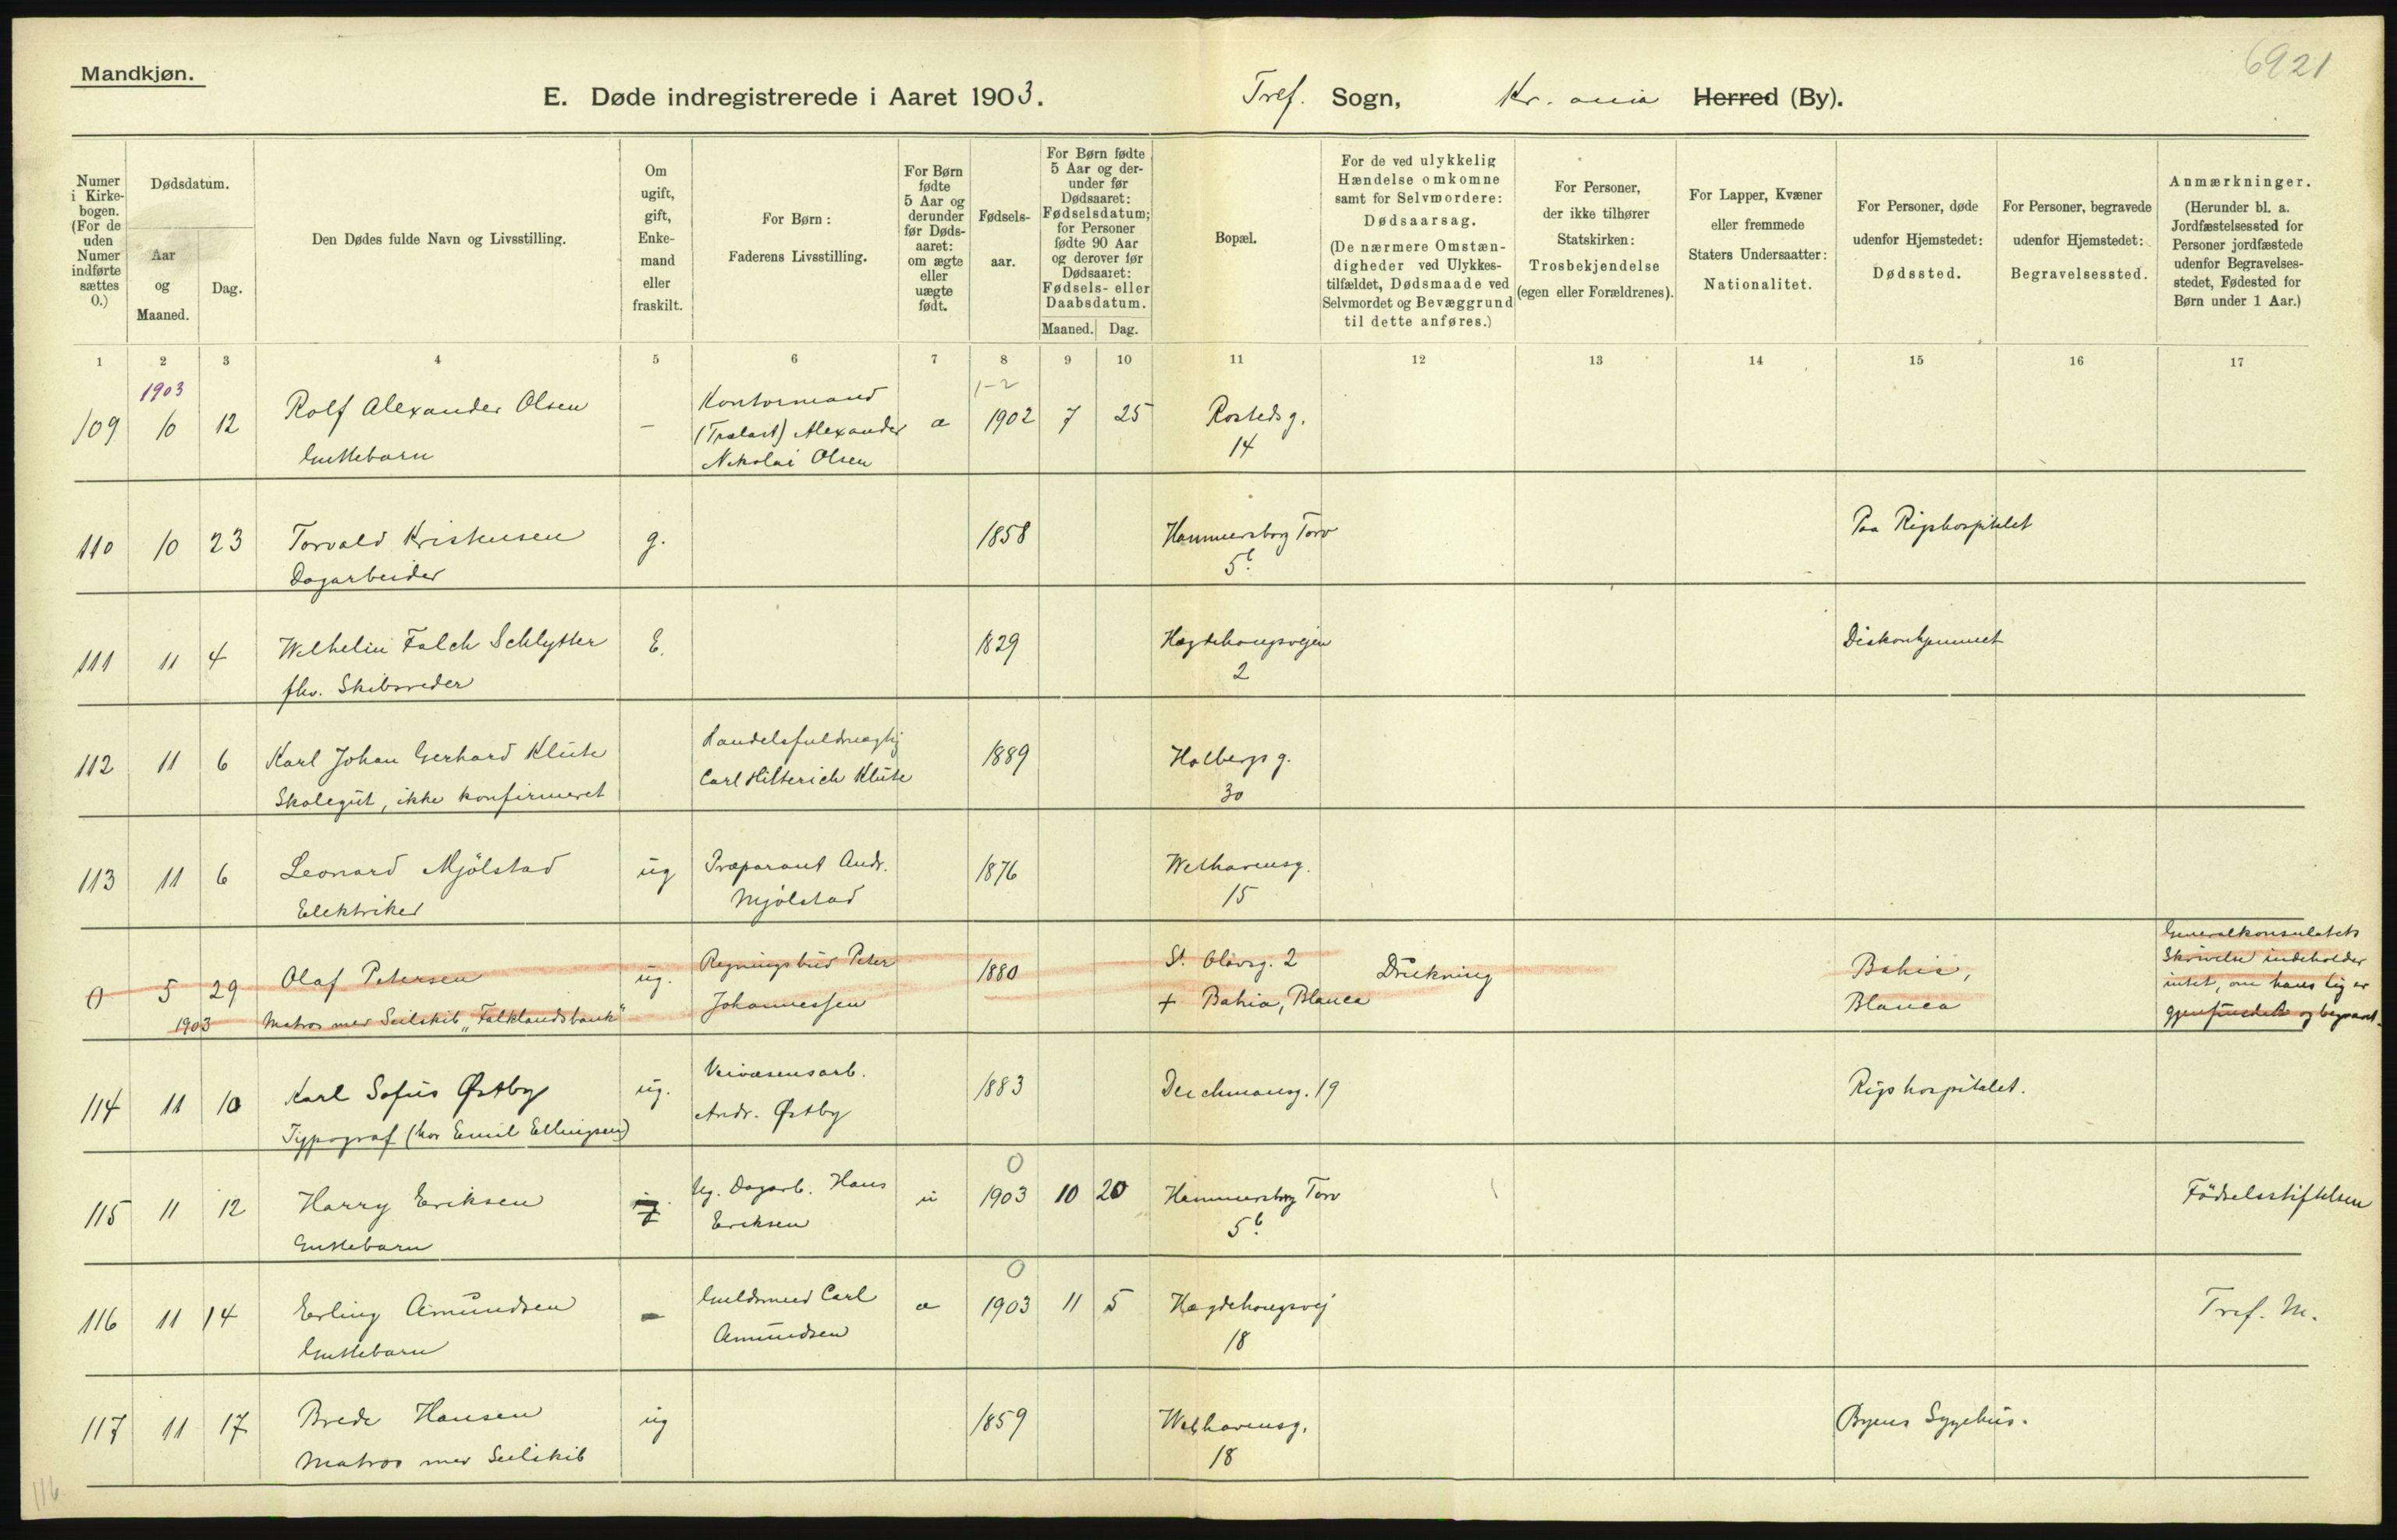 6921
Mandkjøn.
E. Døde indregistrerede i Aaret 1903. Tref. Sogn, Kr. ania Herred (By).
Numer i Kirkebogen. (For de uden Numer indførte sættes 0.)
Dødsdatum.
Aar og Maaned.
Dag.
Den Dødes fulde Navn og Livsstilling.
Om ugift, gift, Enkemand eller fraskilt.
For Børn: Faderens Livsstilling.
For Børn fødte 5 Aar og derunder før Dødsaaret: om ægte eller uægte født.
Fødselsaar.
For Børn fødte 5 Aar og derunder før Dødsaaret: Fødselsdatum; for Personer fødte 90 Aar og derover før Dødsaaret: Fødsels- eller Daabsdatum.
Maaned. Dag.
Bopæl.
For de ved ulykkelig Hændelse omkomne samt for Selvmordere: Dødsaarsag. (De nærmere Omstændigheder ved Ulykkestilfældet, Dødsmaade ved Selvmordet og Bevæggrund til dette anføres.)
For Personer, der ikke tilhører Statskirken: Trosbekjendelse (egen eller Forældrenes).
For Lapper, Kvæner eller fremmede Staters Undersaatter: Nationalitet.
For Personer, døde udenfor Hjemstedet: Dødssted.
For Personer, begravede udenfor Hjemstedet: Begravelsessted.
Anmærkninger. (Herunder bl. a. Jordfæstelsessted for Personer jordfæstede udenfor Begravelsesstedet, Fødested for Børn under 1 Aar.)
1 2 3 4 5 6 7 8 9 10 11 12 13 14 15 16 17
1903 1-2
109 10 12 Rolf Alexander Olsen – Kontormand a 1902 7 25 Rosteds g.
Guttebarn (Trælast) Alexander 14
Nikolai Olsen
110 10 23 Torvald Kristensen g. 1858 Hammersborg Torv Paa Rigshospitalet
Dagarbeider 5b.
111 11 4 Wilhelm Falch Schlytter E. 1829 Hægdehougsvejen Diakonhjemmet
fhv. Skibsreder 2
112 11 6 Karl Johan Gerhard Klüte Handelsfuldmægtig 1889 Holbergs g.
Skolegut, ikke konfirmeret Carl Hitterich Klüte 30
113 11 6 Leonard Mjölstad ug Præparant Andr. 1876 Welhavensg.
Elektriker Mjölstad 15
0 5 29 Olaf Petersen ug. Regningsbud Peter 1880 St. Olavsg. 2 Drukning Bahia, Generalkonsulatets
1903 Matros med Seilskib "Falklandsbank" Johannessen + Bahia, Blanca Blanca Skrivelse indeholder
intet, om hans lig er
gjenfundet og begravet.
114 11 10 Karl Sofus Østby ug. Veivæsensarb. 1883 Deichmansg. 19 Rigshospitalet.
Typograf (hos Emil Ellingsen) Andr. Østby
0
115 11 12 Harry Eriksen Ug. Dagarb. Hans u 1903 10 20 Hammersborg Torv Födselsstiftelsen
Guttebarn Eriksen 5b.
0
116 11 14 Erling Amundsen – Guldsmed Carl a 1903 11 5 Hægdehougsvej Tref. M.
Guttebarn Amundsen 18
117 11 17 Brede Hansen ug 1859 Welhavensg. Byens Sygehus.
Matros med Seilskib 18
116